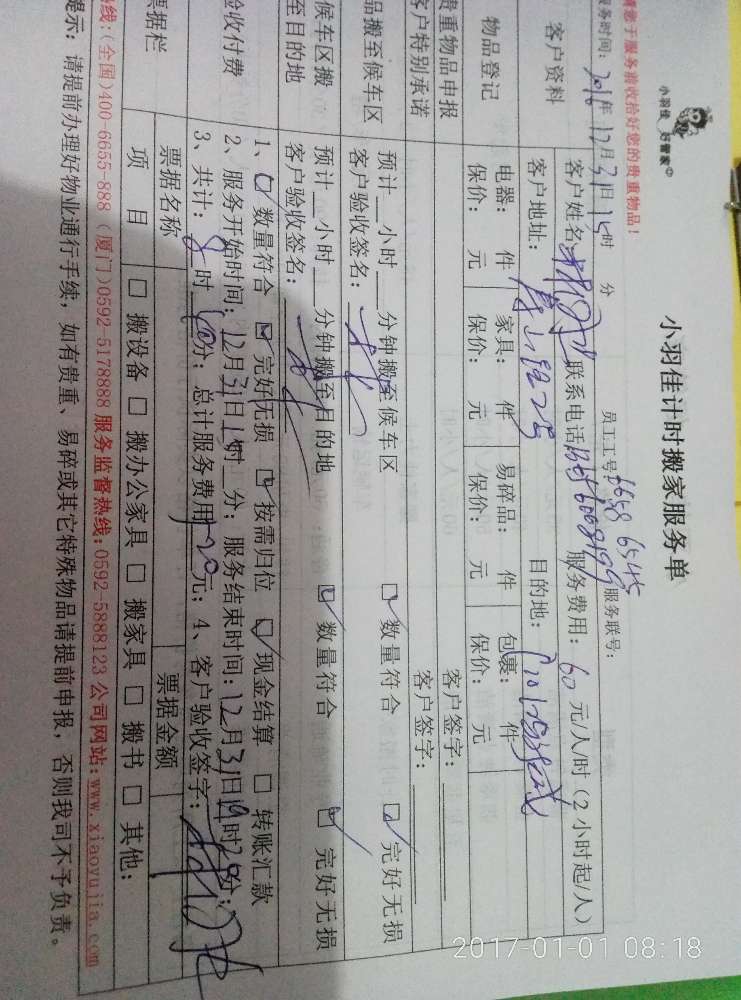 小羽佳 好管家
小羽佳计时搬家服务单
请您于服务前收拾好您的贵重物品！
员工工号: 6658 6545 服务联号:
服务时间: 2016年12月31日15时 分
客户资料
客户姓名 联系电话 服务费用: 60元/人/时(2小时起/人)
客户地址: 目的地:
物品登记
电器: 件 家具: 件 易碎品: 件 包裹: 件
保价: 元 保价: 元 保价: 元 保价: 元
贵重物品申报 客户签字:
客户特别承诺 客户签字:
品搬至候车区
预计 小时 分钟搬至候车区 ☑ 数量符合 ☑ 完好无损
客户验收签名:
候车区搬至目的地
预计 小时 分钟搬至目的地 ☑ 数量符合 ☑ 完好无损
客户验收签名:
验收付费
1、☑ 数量符合 ☑ 完好无损 ☑ 按需归位 ☑ 现金结算 □ 转账汇款
2、服务开始时间: 12月31日15时 分; 服务结束时间: 12月31日19时20分;
3、共计: 时 分; 总计服务费用 元; 4、客户验收签字:
票据栏
票据名称 票据金额
项 目 □ 搬设备 □ 搬办公家具 □ 搬家具 □ 搬书 □ 其他:
热线:(全国)400-6655-888 (厦门)0592-5178888 服务监督热线:0592-5888123 公司网站:www.xiaoyujia.com
提示: 请提前办理好物业通行手续, 如有贵重、易碎或其它特殊物品请提前申报, 否则我司不予负责。
2017-01-01 08:18